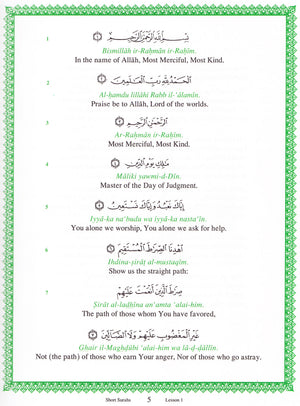 1
بِسْمِ اللَّهِ الرَّحْمَٰنِ الرَّحِيمِ ۝
Bismillāh ir-Raḥmān ir-Raḥīm.
In the name of Allāh, Most Merciful, Most Kind.
2
الْحَمْدُ لِلَّهِ رَبِّ الْعَالَمِينَ ۝
Al-ḥamdu lillāhi Rabb il-'ālamīn.
Praise be to Allāh, Lord of the worlds.
3
الرَّحْمَٰنِ الرَّحِيمِ ۝
Ar-Raḥmān ir-Raḥīm.
Most Merciful, Most Kind.
4
مَالِكِ يَوْمِ الدِّينِ ۝
Māliki yawmi-d-Dīn.
Master of the Day of Judgment.
5
إِيَّاكَ نَعْبُدُ وَإِيَّاكَ نَسْتَعِينُ ۝
Iyyā-ka na'budu wa iyyā-ka nasta'īn.
You alone we worship, You alone we ask for help.
6
اهْدِنَا الصِّرَاطَ الْمُسْتَقِيمَ ۝
Ihdina-ṣirāṭ al-mustaqīm.
Show us the straight path:
7
صِرَاطَ الَّذِينَ أَنْعَمْتَ عَلَيْهِمْ
Ṣirāṭ al-ladhīna an'amta 'alai-him.
The path of those whom You have favored,
غَيْرِ الْمَغْضُوبِ عَلَيْهِمْ وَلَا الضَّالِّينَ ۝
Ghair il-Maghḍūbi 'alai-him wa lā-ḍ-ḍāllīn.
Not (the path) of those who earn Your anger, Nor of those who go astray.
Short Surahs 5 Lesson 1